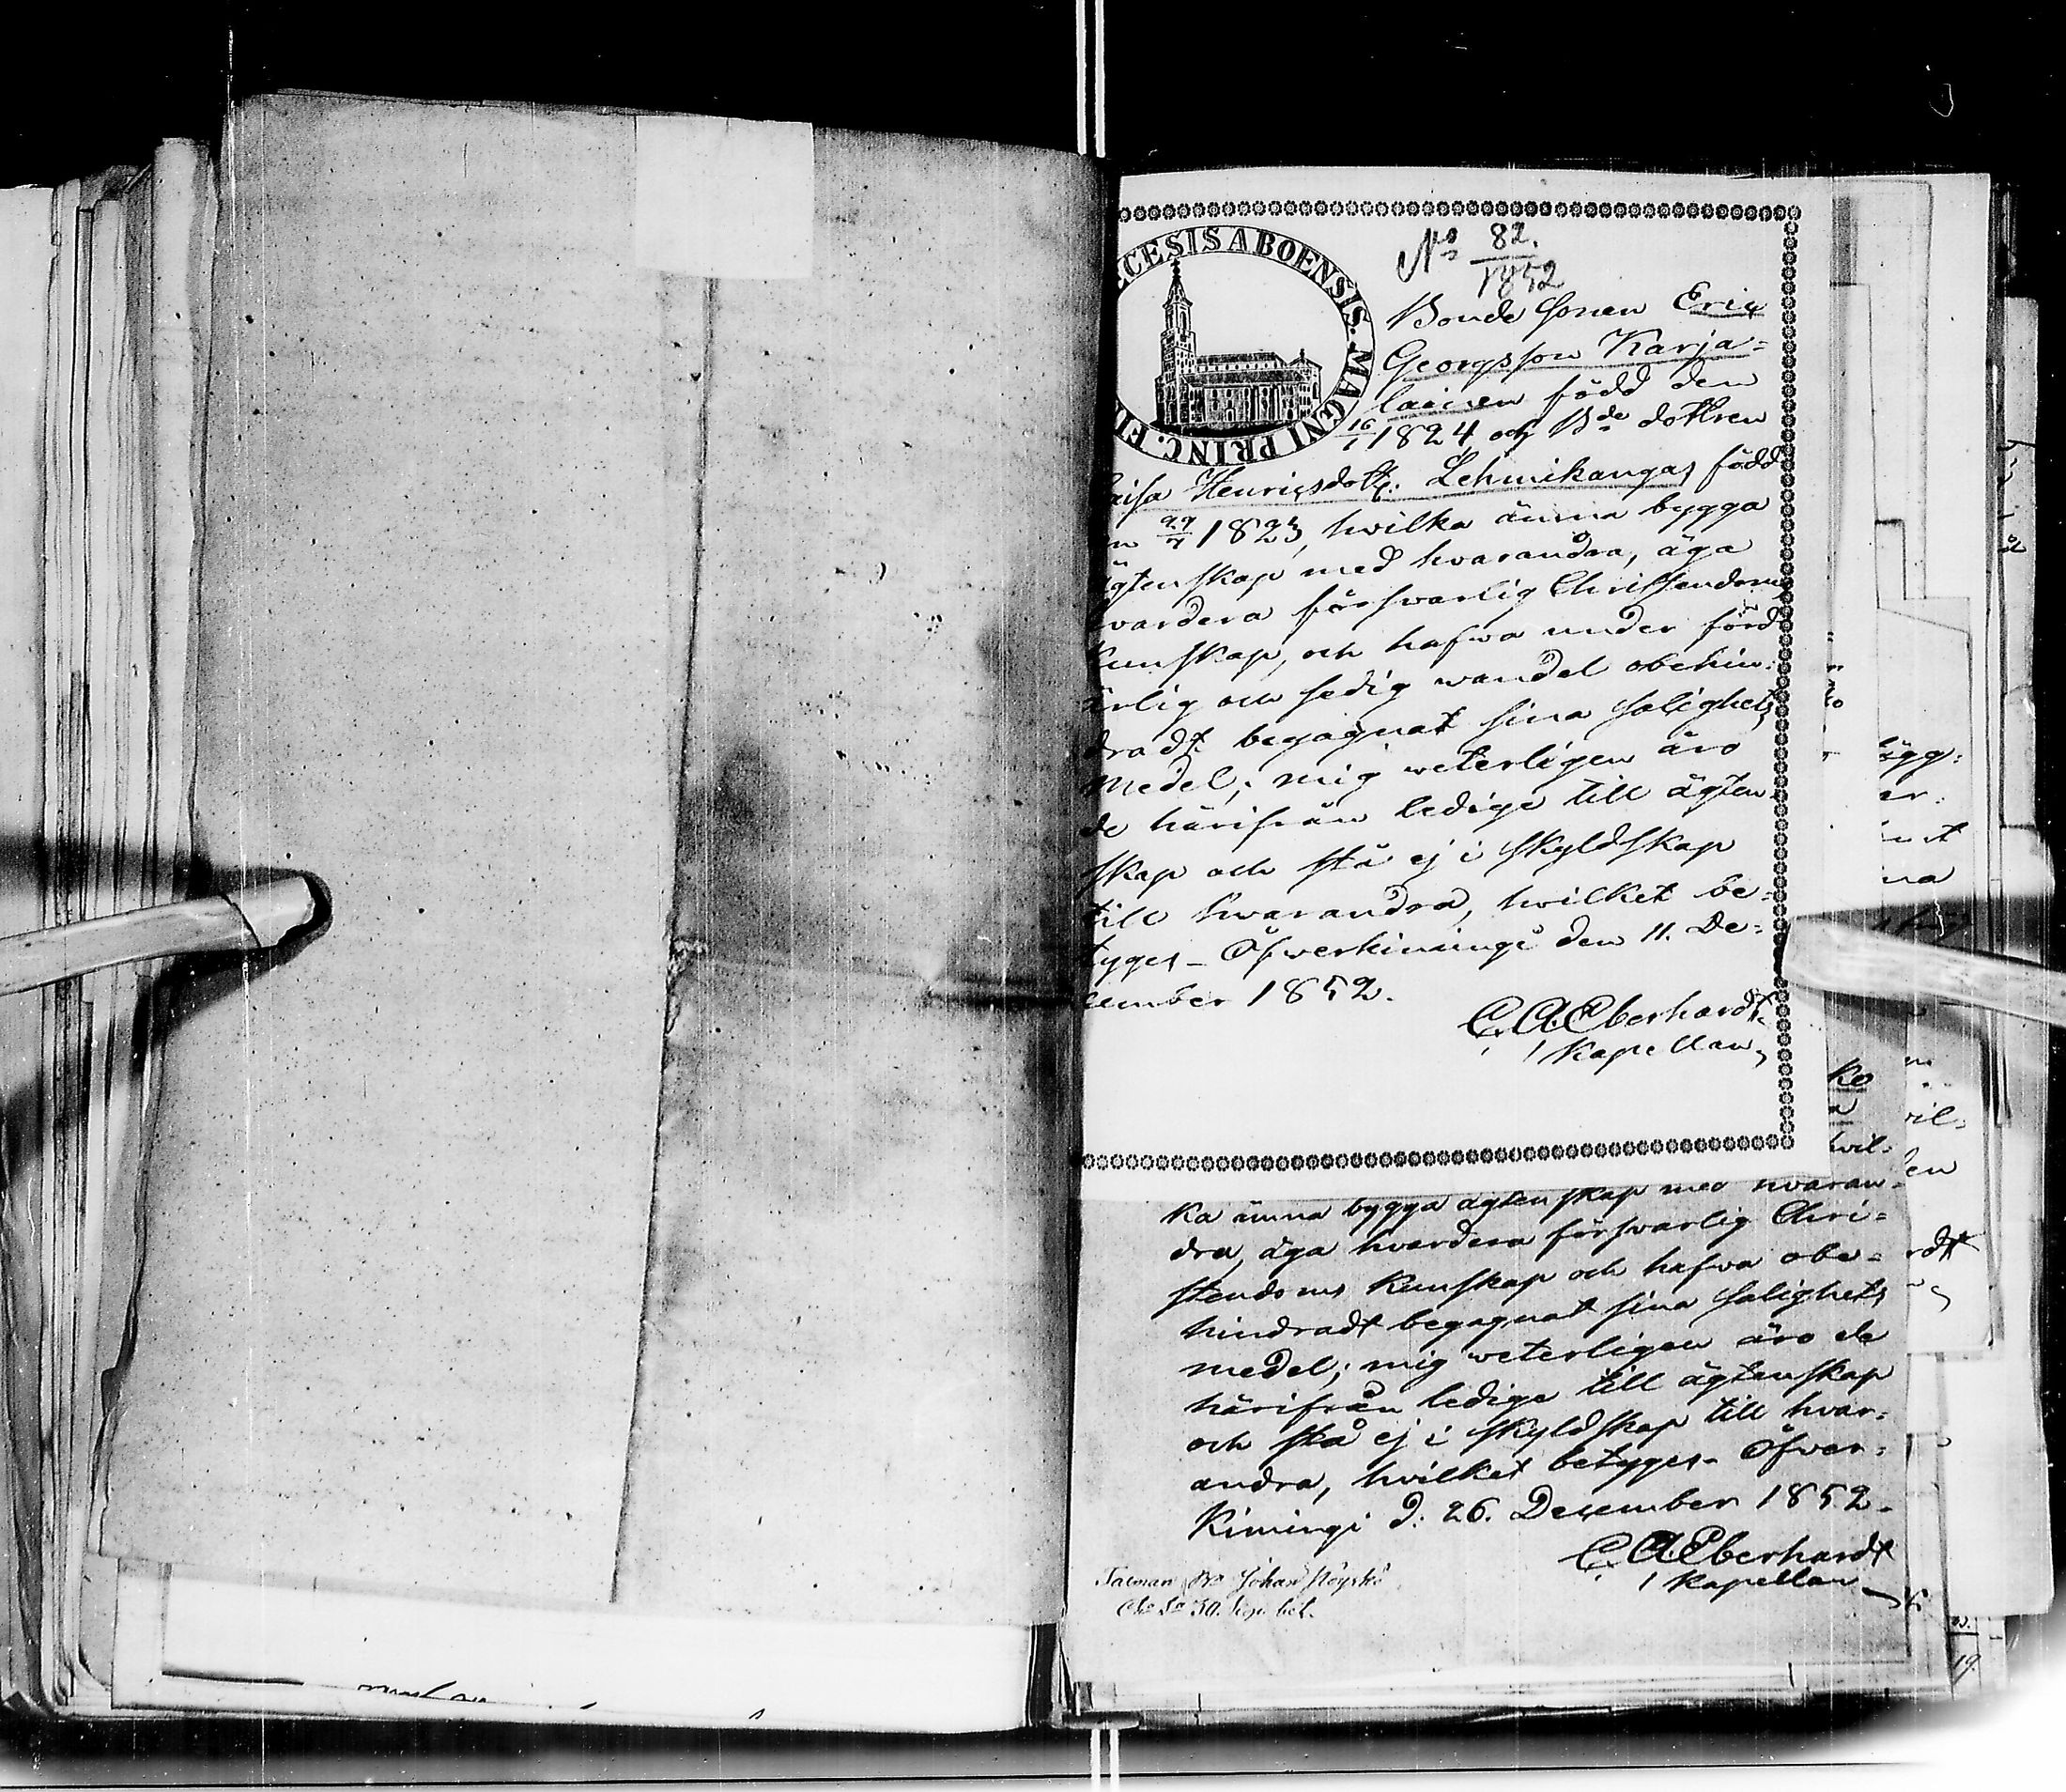 CESIS ABOENSIS. MAGNI PRINC. FI
No 82.
1852
Bonde Sonen Eric
Georgsson Karja=
lainen född den
16/1 1824 och Bde dottren
aisa Henricsdottr. Lehmikangas född
n 29/7 1823, hwilka ämna bygga
ägtenskap med hvarandra, äga
hvardera försvarlig Christendoms
kunskap, och hafwa under förd
ärlig och sedig wandel obehin=
dradt begagnat sina salighets
medel; mig weterligen äro
de härifrån ledige till ägten=
skap och stå ej i skyldskap
till hvarandra, hwilket be=
tyges – Öfwerkimingi den 11. De=
cember 1852.
C. A. Eberhardt
Kapellan
ka ämna bygga ägtenskap med hvaran=
dra, äga hvardera försvarlig Chri=
stendoms kunskap och hafwa obe=
hindradt begagnat sina salighets
medel; mig weterligen äro de
härifrån ledige till ägtenskap
och stå ej i skyldskap till hvar=
andra, hvilket betyges – Öfver=
Kimingi d. 26. December 1852.
C. A. Eberhardt
Kapellan
Talman Bn Johan